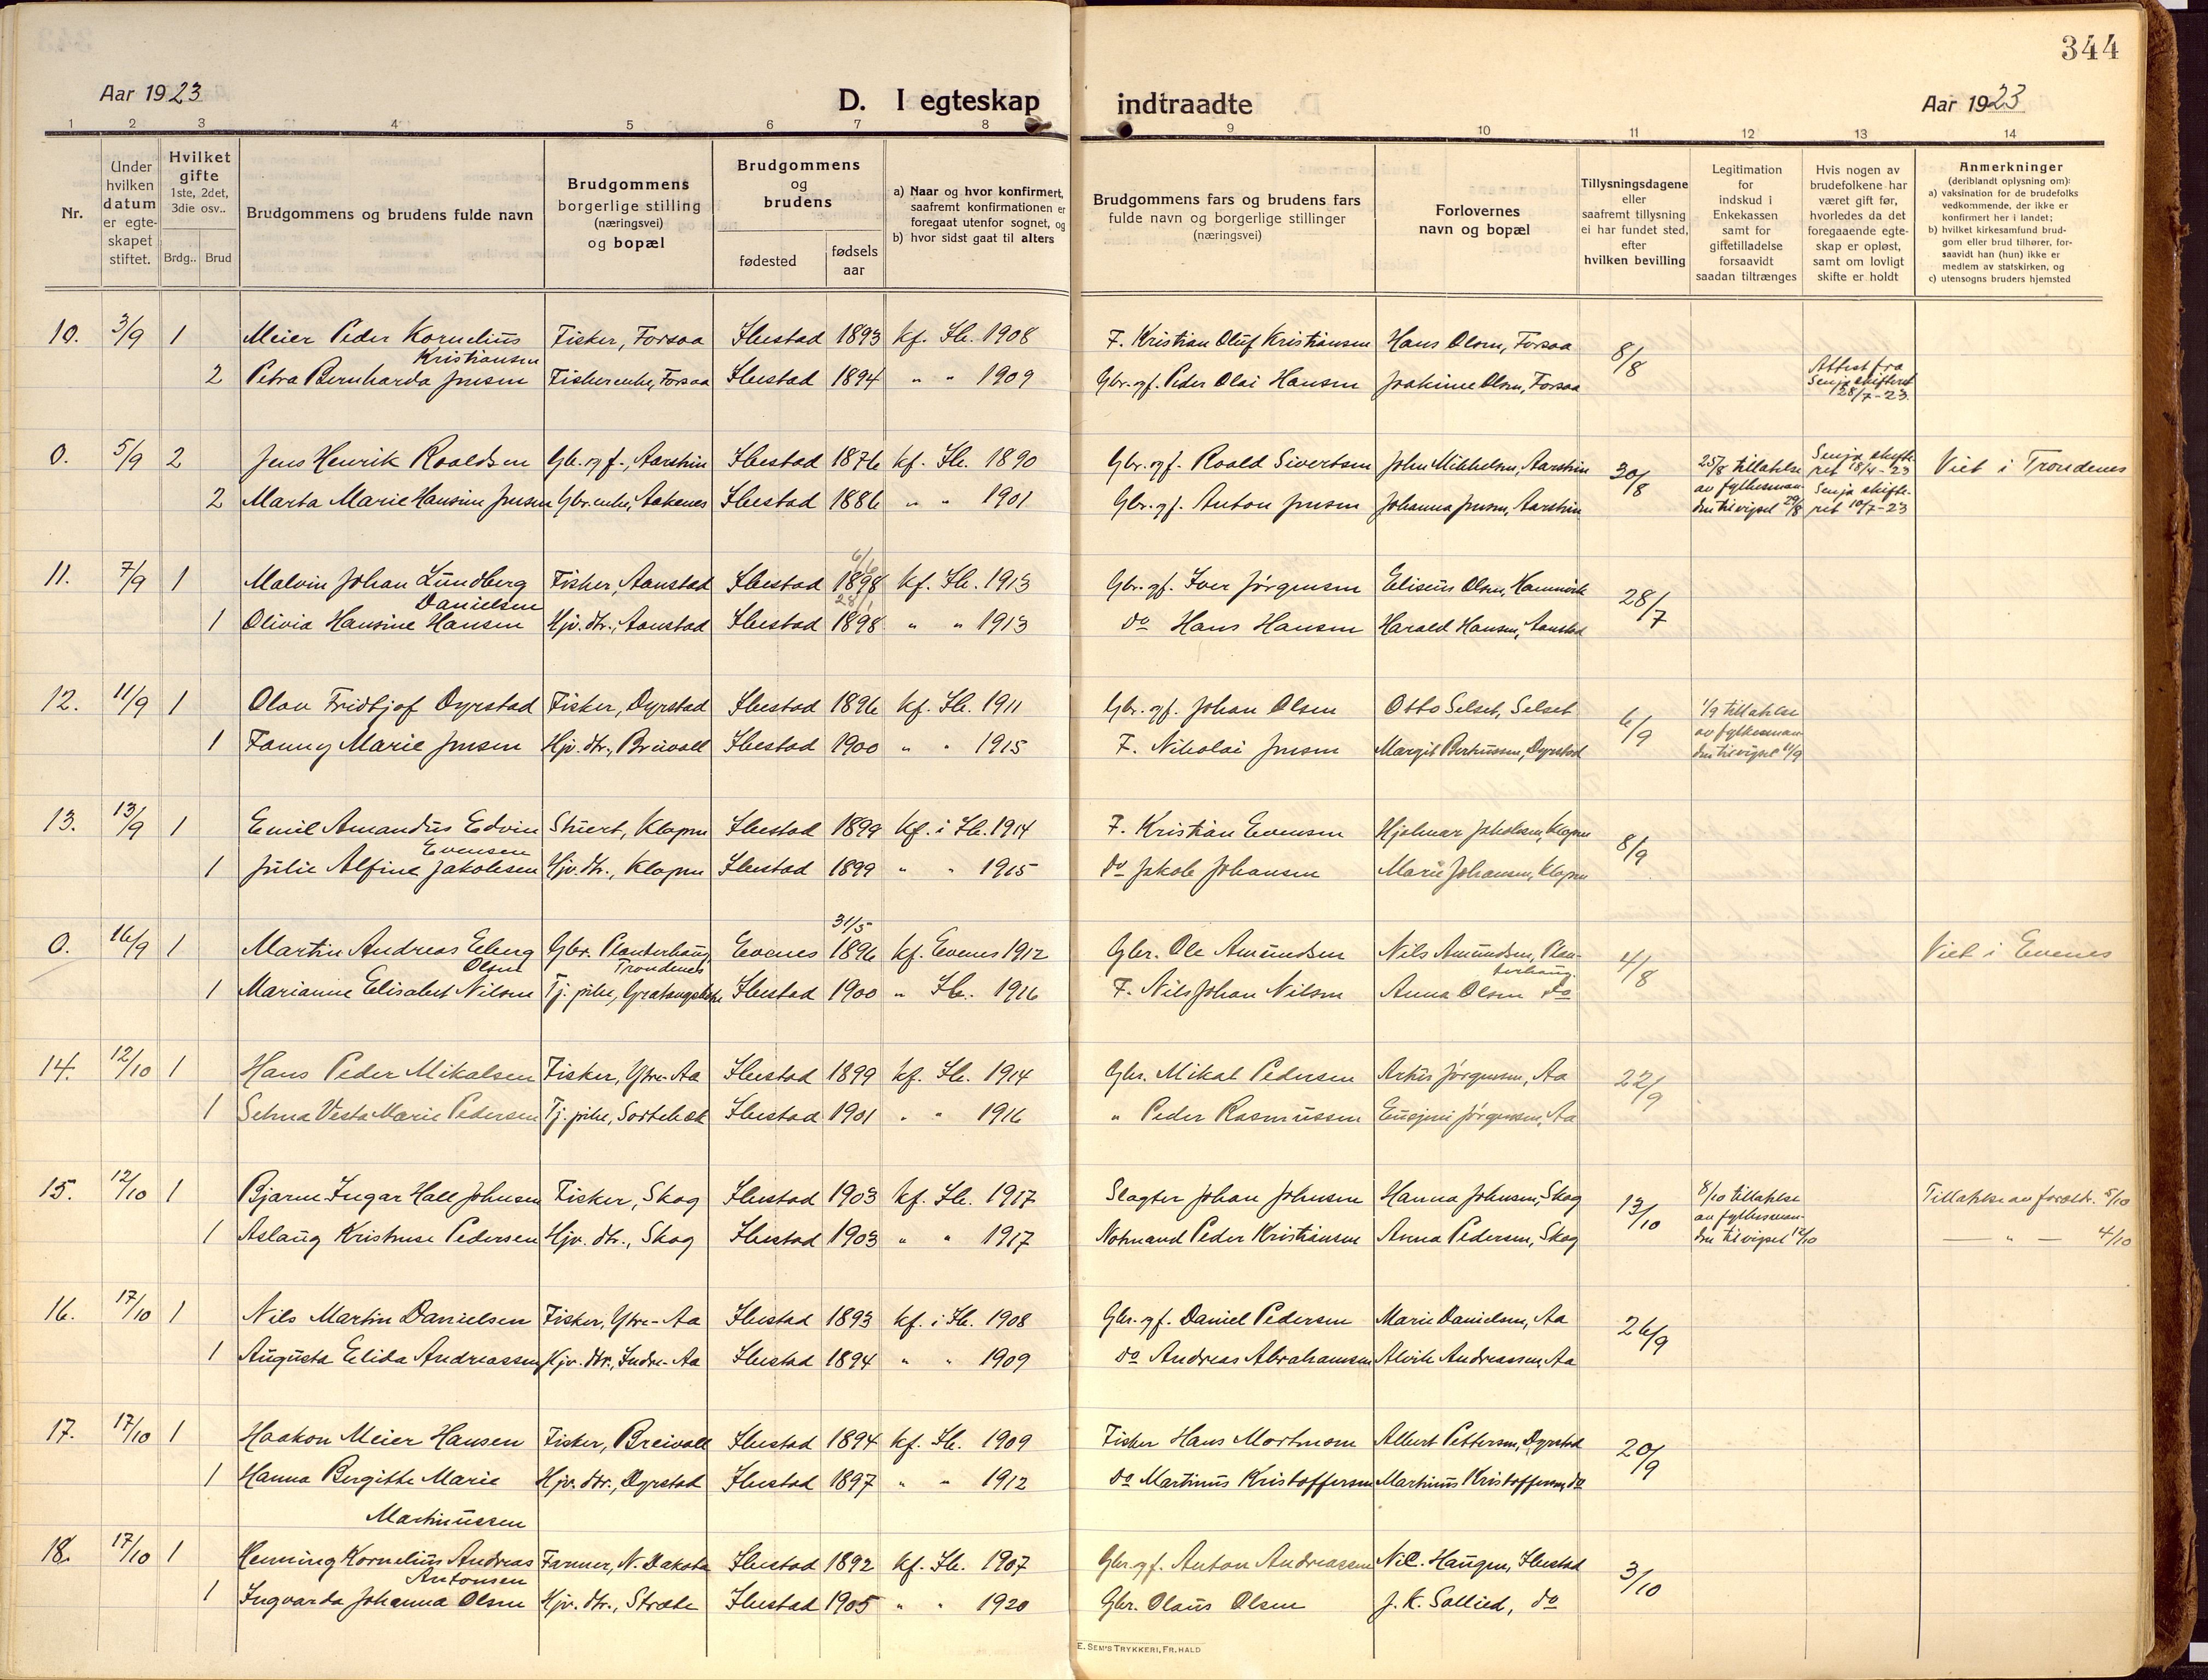 344
Aar 1923
D. I egteskap
indtraadte
Aar 1923
1 2 3 4 5 6 7 8 9 10 11 12 13 14
Nr.
Under hvilken datum er egte-skapet stiftet.
Hvilket gifte 1ste, 2det, 3die osv..
Brdg.. Brud
Brudgommens og brudens fulde navn
Brudgommens borgerlige stilling (næringsvei) og bopæl
Brudgommens og brudens
fødested
fødsels aar
a) Naar og hvor konfirmert, saafremt konfirmationen er foregaat utenfor sognet, og
b) hvor sidst gaat til alters
Brudgommens fars og brudens fars fulde navn og borgerlige stillinger (næringsvei)
Forlovernes navn og bopæl
Tillysningsdagene eller saafremt tillysning ei har fundet sted, efter hvilken bevilling
Legitimation for indskud i Enkekassen samt for giftetilladelse forsaavidt saadan tiltrænges
Hvis nogen av brudefolkene har været gift før, hvorledes da det foregaaende egte-skap er opløst, samt om lovligt skifte er holdt
Anmerkninger (deriblandt oplysning om):
a) vaksination for de brudefolks vedkommende, der ikke er konfirmert her i landet;
b) hvilket kirkesamfund brud-gom eller brud tilhører, for-saavidt han (hun) ikke er medlem av statskirken, og
c) utensogns bruders hjemsted
10. 3/9 1 Meier Peder Kornelius Kristiansen Fisker, Forsaa Ibestad 1893 kf. Ib. 1908 F. Kristian Oluf Kristiansen Hans Olsen, Forsaa 8/8
2 Petra Bernharda Jensen Fiskerenke, Forsaa Ibestad 1894 " " 1909 Gbr. og f. Peder Olai Hansen Joakime Olsen, Forsaa Attest fra Senja skifteret 28/7-23.
0. 5/9 2 Jens Henrik Roaldsen Gb. og f., Aarstein Ibestad 1876 kf. Ib. 1890 Gbr. og f. Roald Sivertsen John Mikkelsen, Aarstein 30/8 25/8 tillatelse av fylkesman-den til vigsel 29/8 Senja skifte-ret 18/4-23 Viet i Trondenes
2 Marta Marie Hansine Jensen Gbr. enke, Aakenes Ibestad 1886 " " 1901 Gbr. og f. Anton Jensen Johanna Jensen, Aarstein Senja skifte-ret 10/7-23
11. 7/9 1 Malvin Johan Lundberg Danielsen Fisker, Aanstad Ibestad 6/6 1898 kf. Ib. 1913 Gbr. og f. Iver Jørgensen Eliseus Olsen, Hamnvik 28/7
1 Olivia Hansine Hansen Hjv. dtr., Aanstad Ibestad 28/1 1898 " " 1913 do Hans Hansen Harald Hansen, Aanstad
12. 11/9 1 Olav Fridtjof Dyrstad Fisker, Dyrstad Ibestad 1896 kf. Ib. 1911 Gbr. og f. Johan Olsen Otto Selset, Selset 6/9 1/9 tillatelse av fylkesman-den til vigsel 11/9
1 Fanny Marie Jensen Hjv. dtr., Breivoll Ibestad 1900 " " 1915 F. Nikolai Jensen Margit Berteussen, Dyrstad
13. 13/9 1 Emil Amandus Edvin Evensen Stuert, Klåpen Ibestad 1899 kf. i Ib. 1914 F. Kristian Evensen Hjalmar Jakobsen, Klåpen 8/9
1 Julie Alfine Jakobsen Hjv. dtr., Klåpen Ibestad 1899 " " 1915 do Jakob Johansen Marie Johansen, Klåpen
0. 16/9 1 Martin Andreas Eberg Olsen Gbr. Planterhaug, Trondenes Evenes 31/5 1896 kf. Evenes 1912 Gbr. Ole Amundsen Nils Amundsen, Plan-terhaug. 4/8 Viet i Evenes
1 Marianne Elisabet Nilsen Tj. pike, Gratangsbotn Ibestad 1900 " Ib. 1916 F. Nils Johan Nilsen Anna Olsen do
14. 12/10 1 Hans Peder Mikalsen Fisker, Ytre-Aa Ibestad 1899 kf. Ib. 1914 Gbr. Mikal Pedersen Artur Jørgensen, Aa 22/9
1 Selma Vesta Marie Pedersen Tj. pike, Sortebæk Ibestad 1901 " " 1916 " Peder Rasmussen Eugeni Jørgensen, Aa
15. 12/10 1 Bjarne Ingar Hall Johnsen Fisker, Skog Ibestad 1903 kf. Ib. 1917 Slagter Johan Johnsen Hanna Johnsen, Skog 13/10 8/10 tillatelse av fylkesman-den til vigsel 12/10 Tillatelse av foreldr. 5/10
1 Aslaug Kristense Pedersen Hjv. dtr., Skog Ibestad 1903 " " 1917 Notmand Peder Kristiansen Anna Pedersen, Skog — " — 4/10
16. 17/10 1 Nils Martin Danielsen Fisker, Ytre-Aa Ibestad 1893 kf. i Ib. 1908 Gbr. og f. Daniel Pedersen Marie Danielsen, Aa 26/9
1 Augusta Elida Andreassen Hjv. dtr., Indre-Aa Ibestad 1894 " " 1909 do Andreas Abrahamsen Alvik Andreassen, Aa
17. 17/10 1 Haakon Meier Hansen Fisker, Breivoll Ibestad 1894 kf. Ib. 1909 Fisker Hans Mortensen Albert Pettersen, Dyrstad 20/9
1 Hanna Bergitte Marie Martinussen Hjv. dtr., Dyrstad Ibestad 1897 " " 1912 do Martinus Kristoffersen Martinus Kristoffersen, do
18. 17/10 1 Henning Kornelius Andreas Antonsen Farmer, N. Dakota Ibestad 1892 kf. Ib. 1907 Gbr. og f. Anton Andreassen Nil. Haugen, Ibestad 3/10
1 Ingvarda Johanna Olsen Hjv. dtr., Stræte Ibestad 1905 " " 1920 Gbr. Olaus Olsen J. K. Sollied, do
E. SEM'S TRYKKERI, FR.HALD